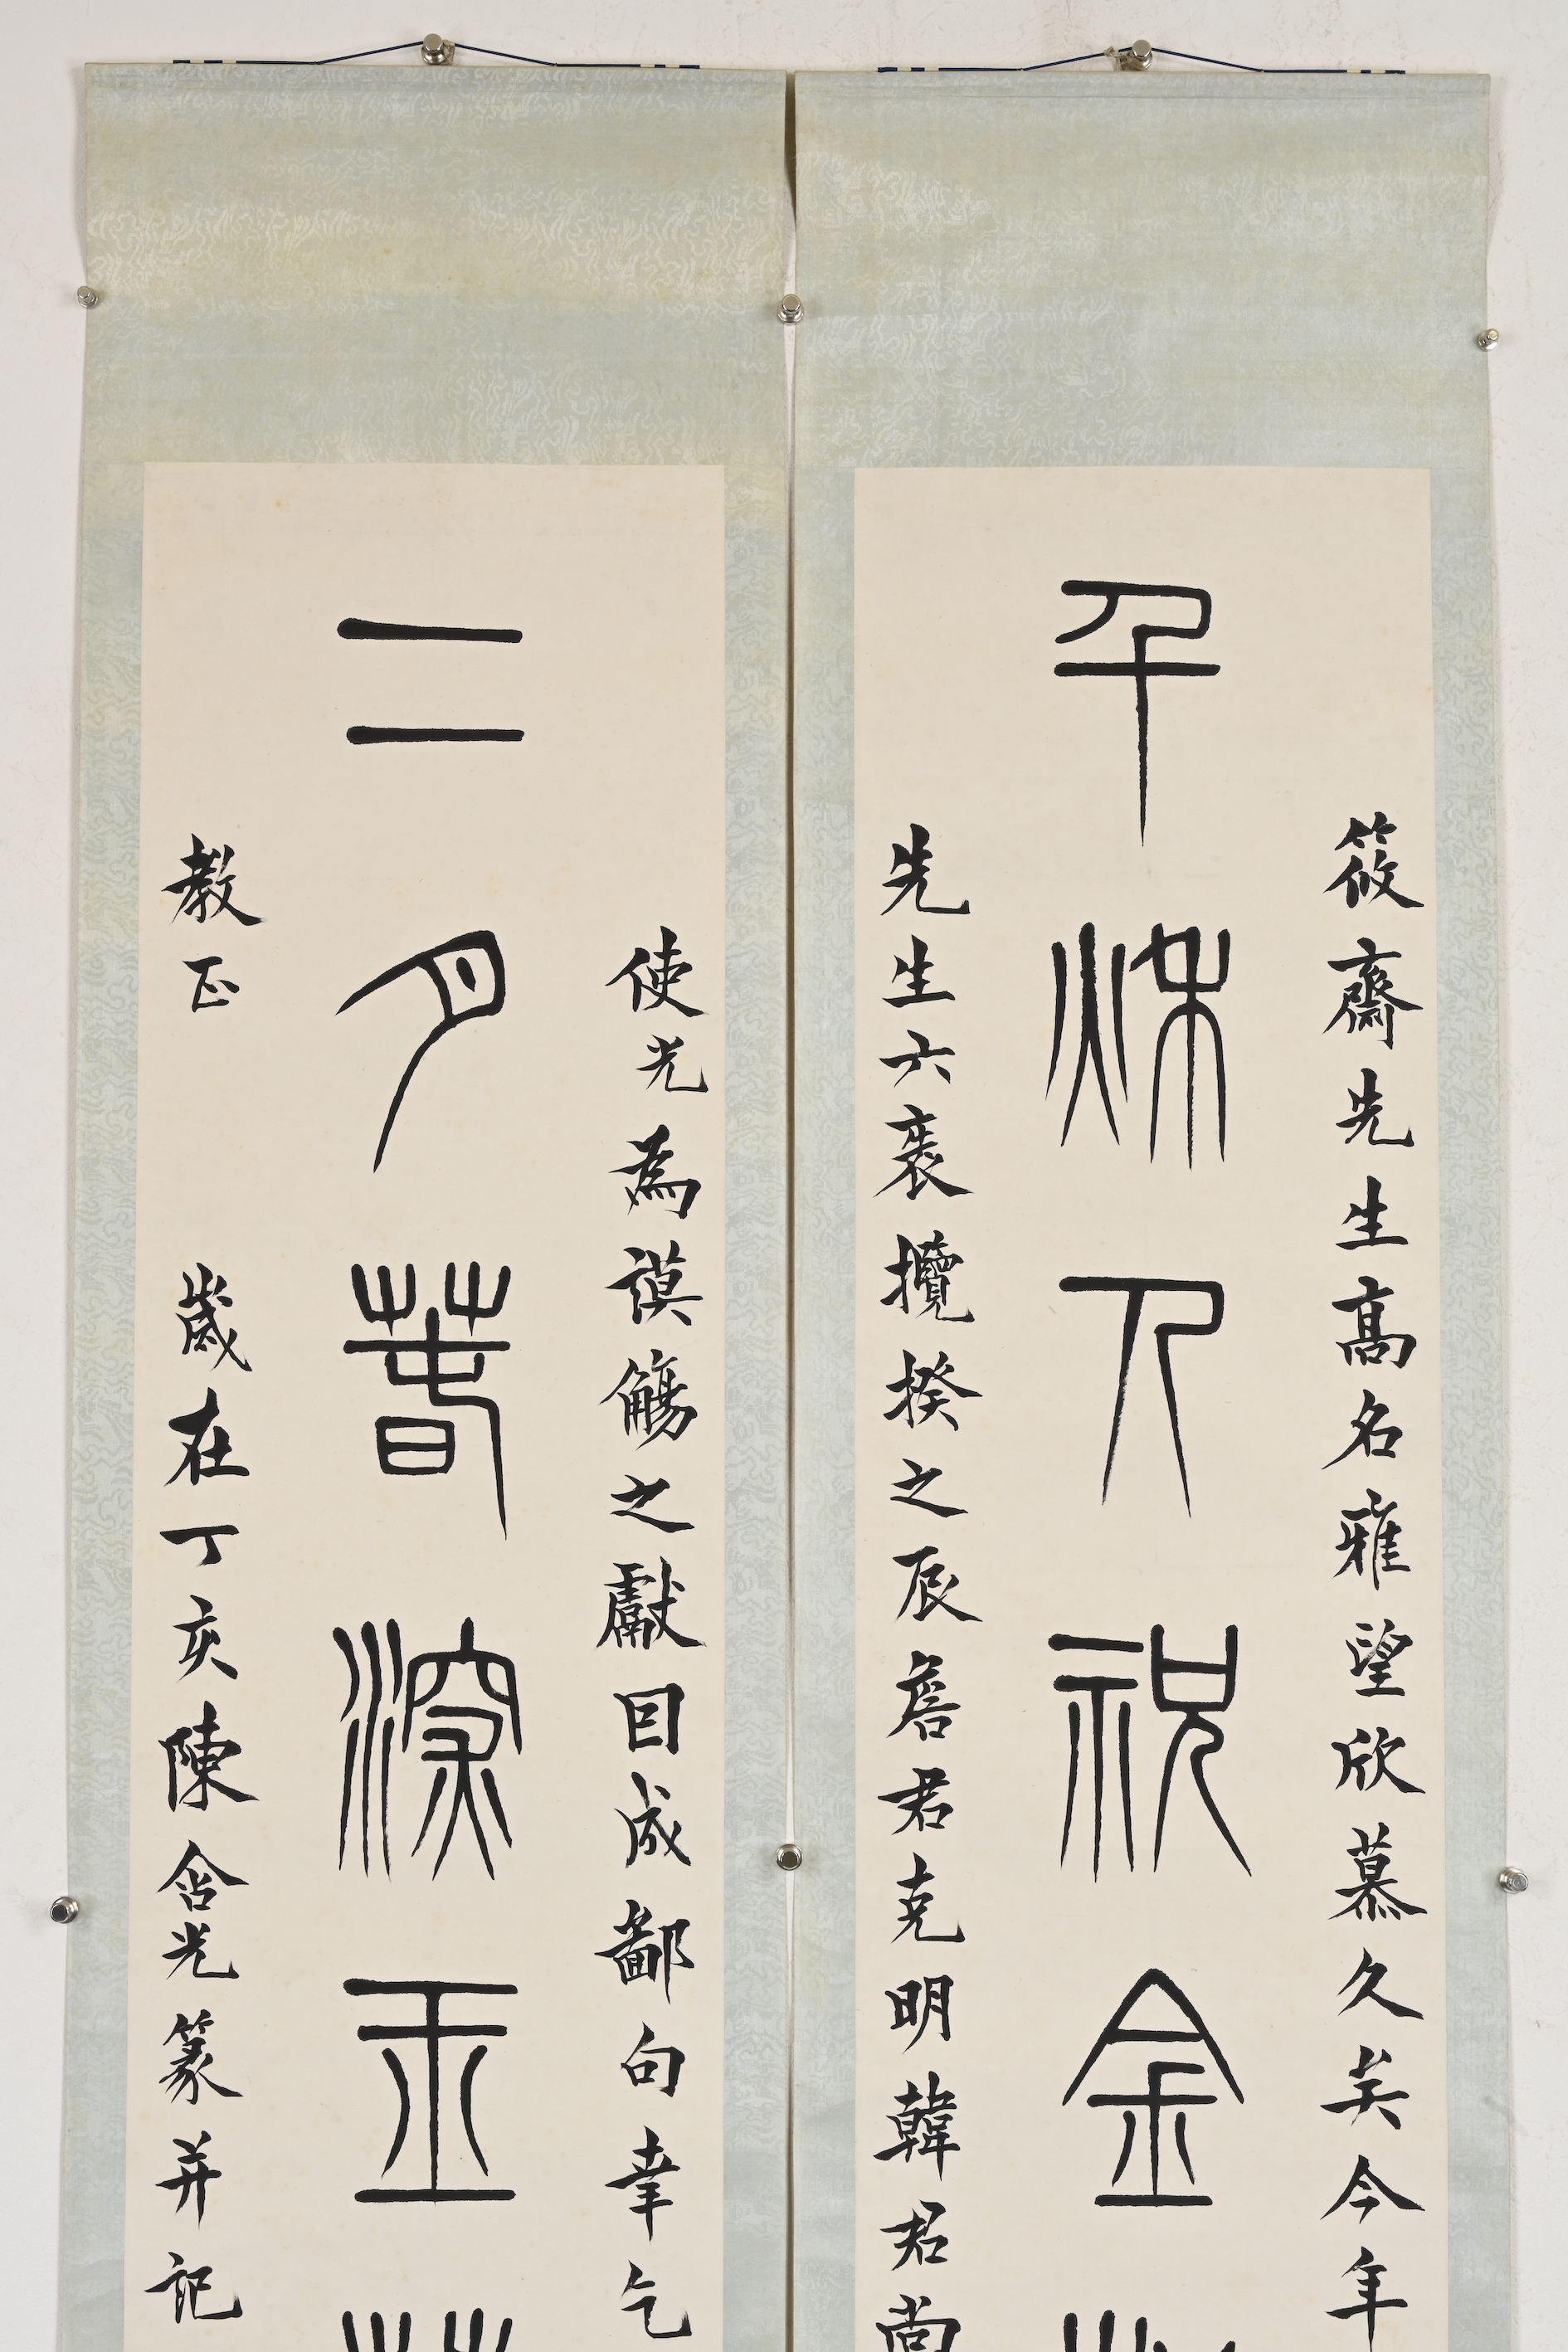 筱齋先生高名雅望欣慕久矣今年
千秌人祝金
先生六袠攬揆之辰詹君克明韓君尚
使光為謨觴之獻囙成鄙句幸乞
二月春深玉
教正 歲在丁亥陳含光篆并記